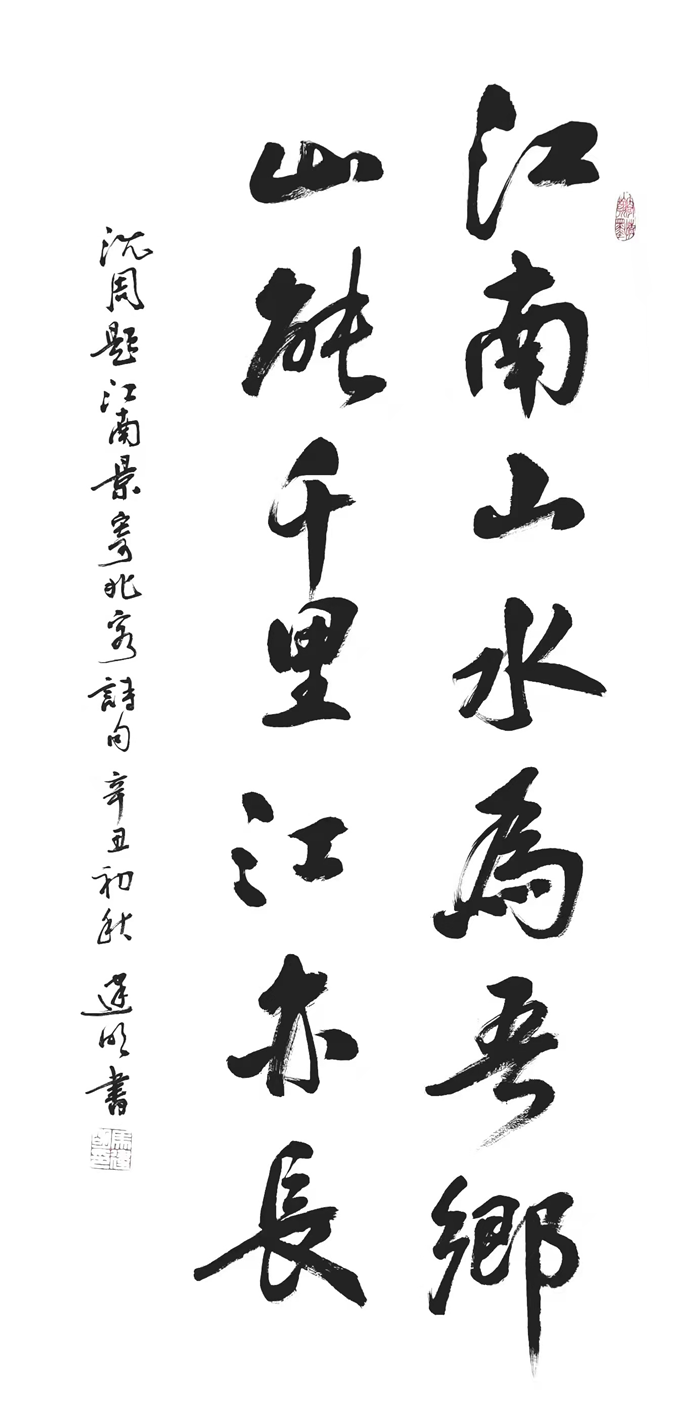 江南山水為吾鄉
山能千里江亦長
沈周題江南景寄北客詩句 辛丑初秋 建明書